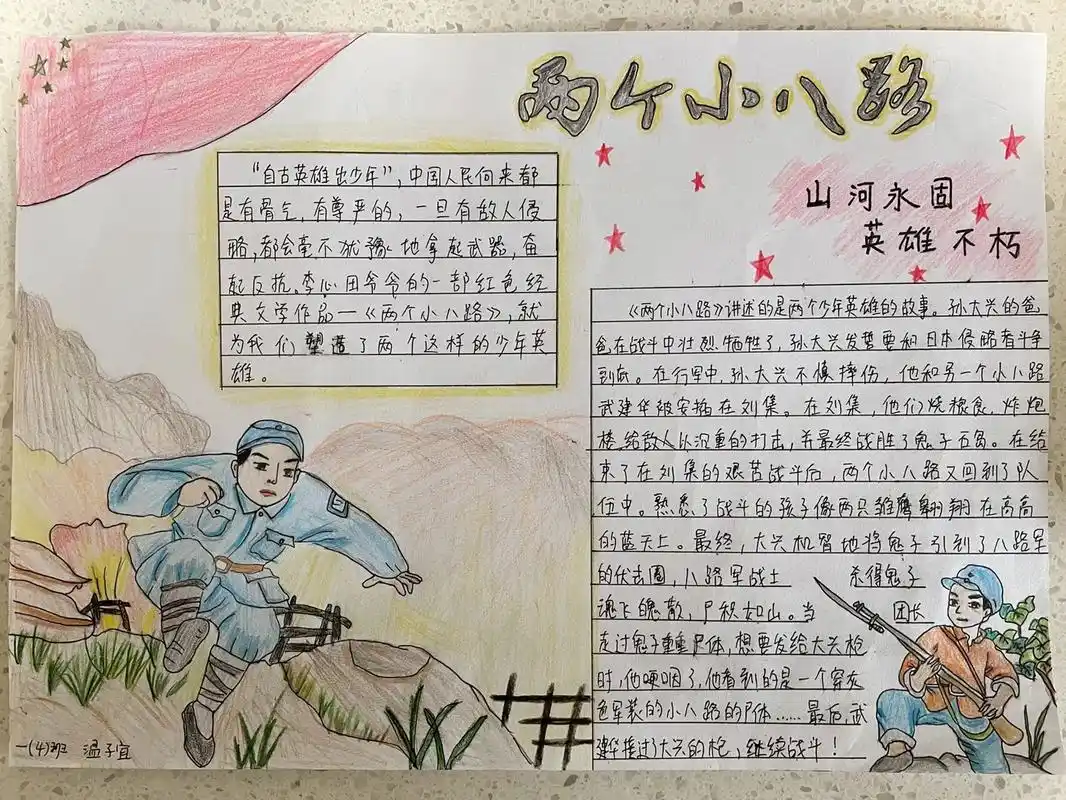 两个小八路
山河永固
英雄不朽
“自古英雄出少年”,中国人民向来都
是有骨气,有尊严的,一旦有敌人侵
略,都会毫不犹豫地拿起武器,奋
起反抗。李心田爷爷的一部红色经
典文学作品—《两个小八路》,就
为我们塑造了两个这样的少年英
雄。
《两个小八路》讲述的是两个少年英雄的故事。孙大兴的爸
爸在战斗中壮烈牺牲了,孙大兴发誓要和日本侵略者斗争
到底。在行军中,孙大兴不慎摔伤,他和另一个小八路
武建华被安插在刘集。在刘集,他们烧粮食,炸炮
楼,给敌人以沉重的打击,并最终战胜了鬼子石岛。在结
束了在刘集的艰苦战斗后,两个小八路又回到了队
伍中。熟悉了战斗的孩子像两只雏鹰翱翔在高高
的蓝天上。最终,大兴机智地将鬼子引到了八路军
的伏击圈,八路军战士 杀得鬼子
魂飞魄散,尸积如山。当 团长
走过鬼子重重尸体,想要发给大兴枪
时,他哽咽了,他看到的是一个穿灰
色军装的小八路的尸体……最后,武
建华接过了大兴的枪,继续战斗!
一(4)班 温子宜